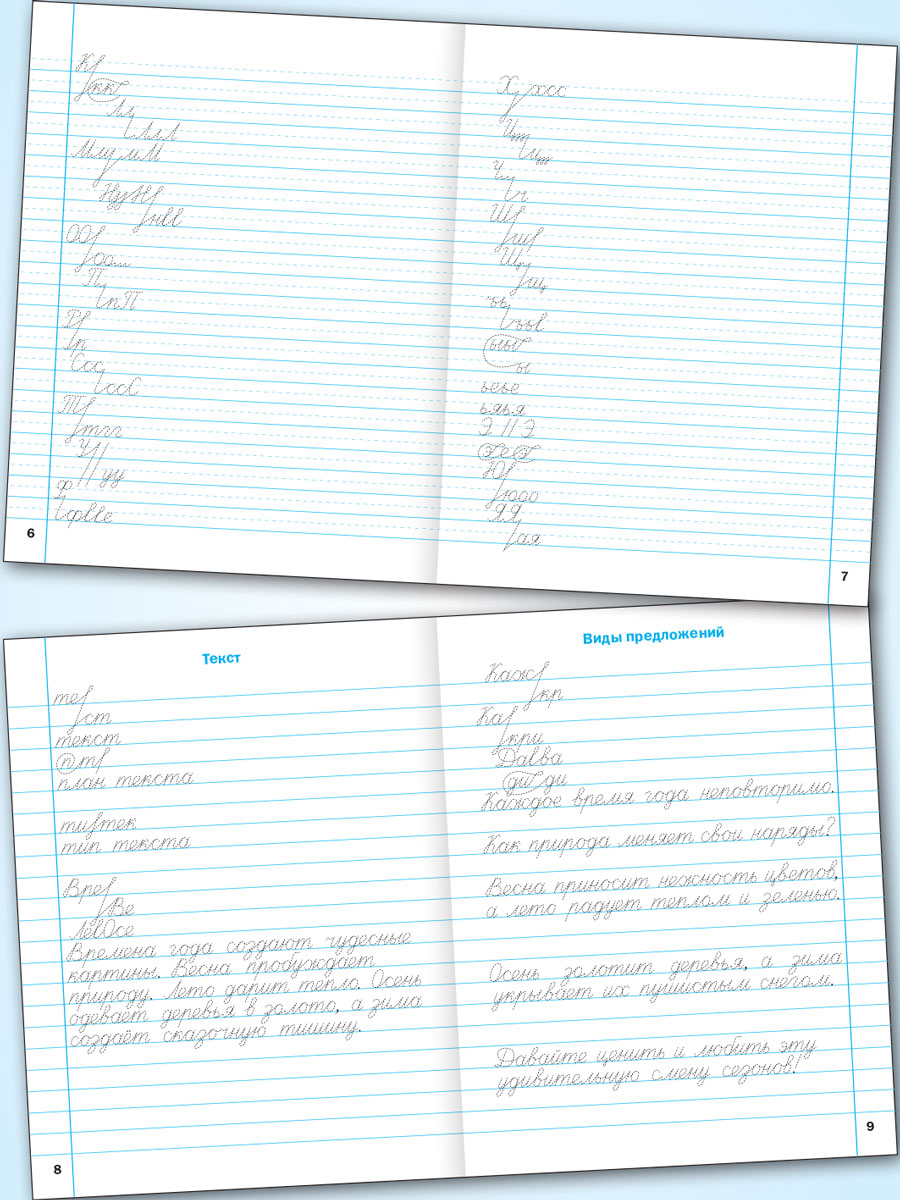 К
кк
Лл
ллЛ
Ммм
НнН
нвв
ОО
оо
П
пП
Р
Ссс
ссС
Т
тгг
У
уу
Ф
фвве
6
Х хсс
Ч
ч
Ш
ш
Щ
щ
ъъ
ъъв
ыы
ы
ьеье
ьяья
Э // Э
Ю
юоо
ЯЯ
ая
7
Текст
те
ст
текст
п т
план текста
ти тек
тип текста
Вре
Ве
Времена года создают чудесные
картины. Весна пробуждает
природу. Лето дарит тепло. Осень
одевает деревья в золото, а зима
создаёт сказочную тишину.
8
Виды предложений
Каж
кр
Ка
кри
Давва
ди ди
Каждое время года неповторимо.
Как природа меняет свои наряды?
Весна приносит нежность цветов,
а лето радует теплом и зеленью.
Осень золотит деревья, а зима
укрывает их пушистым снегом.
Давайте ценить и любить эту
удивительную смену сезонов!
9